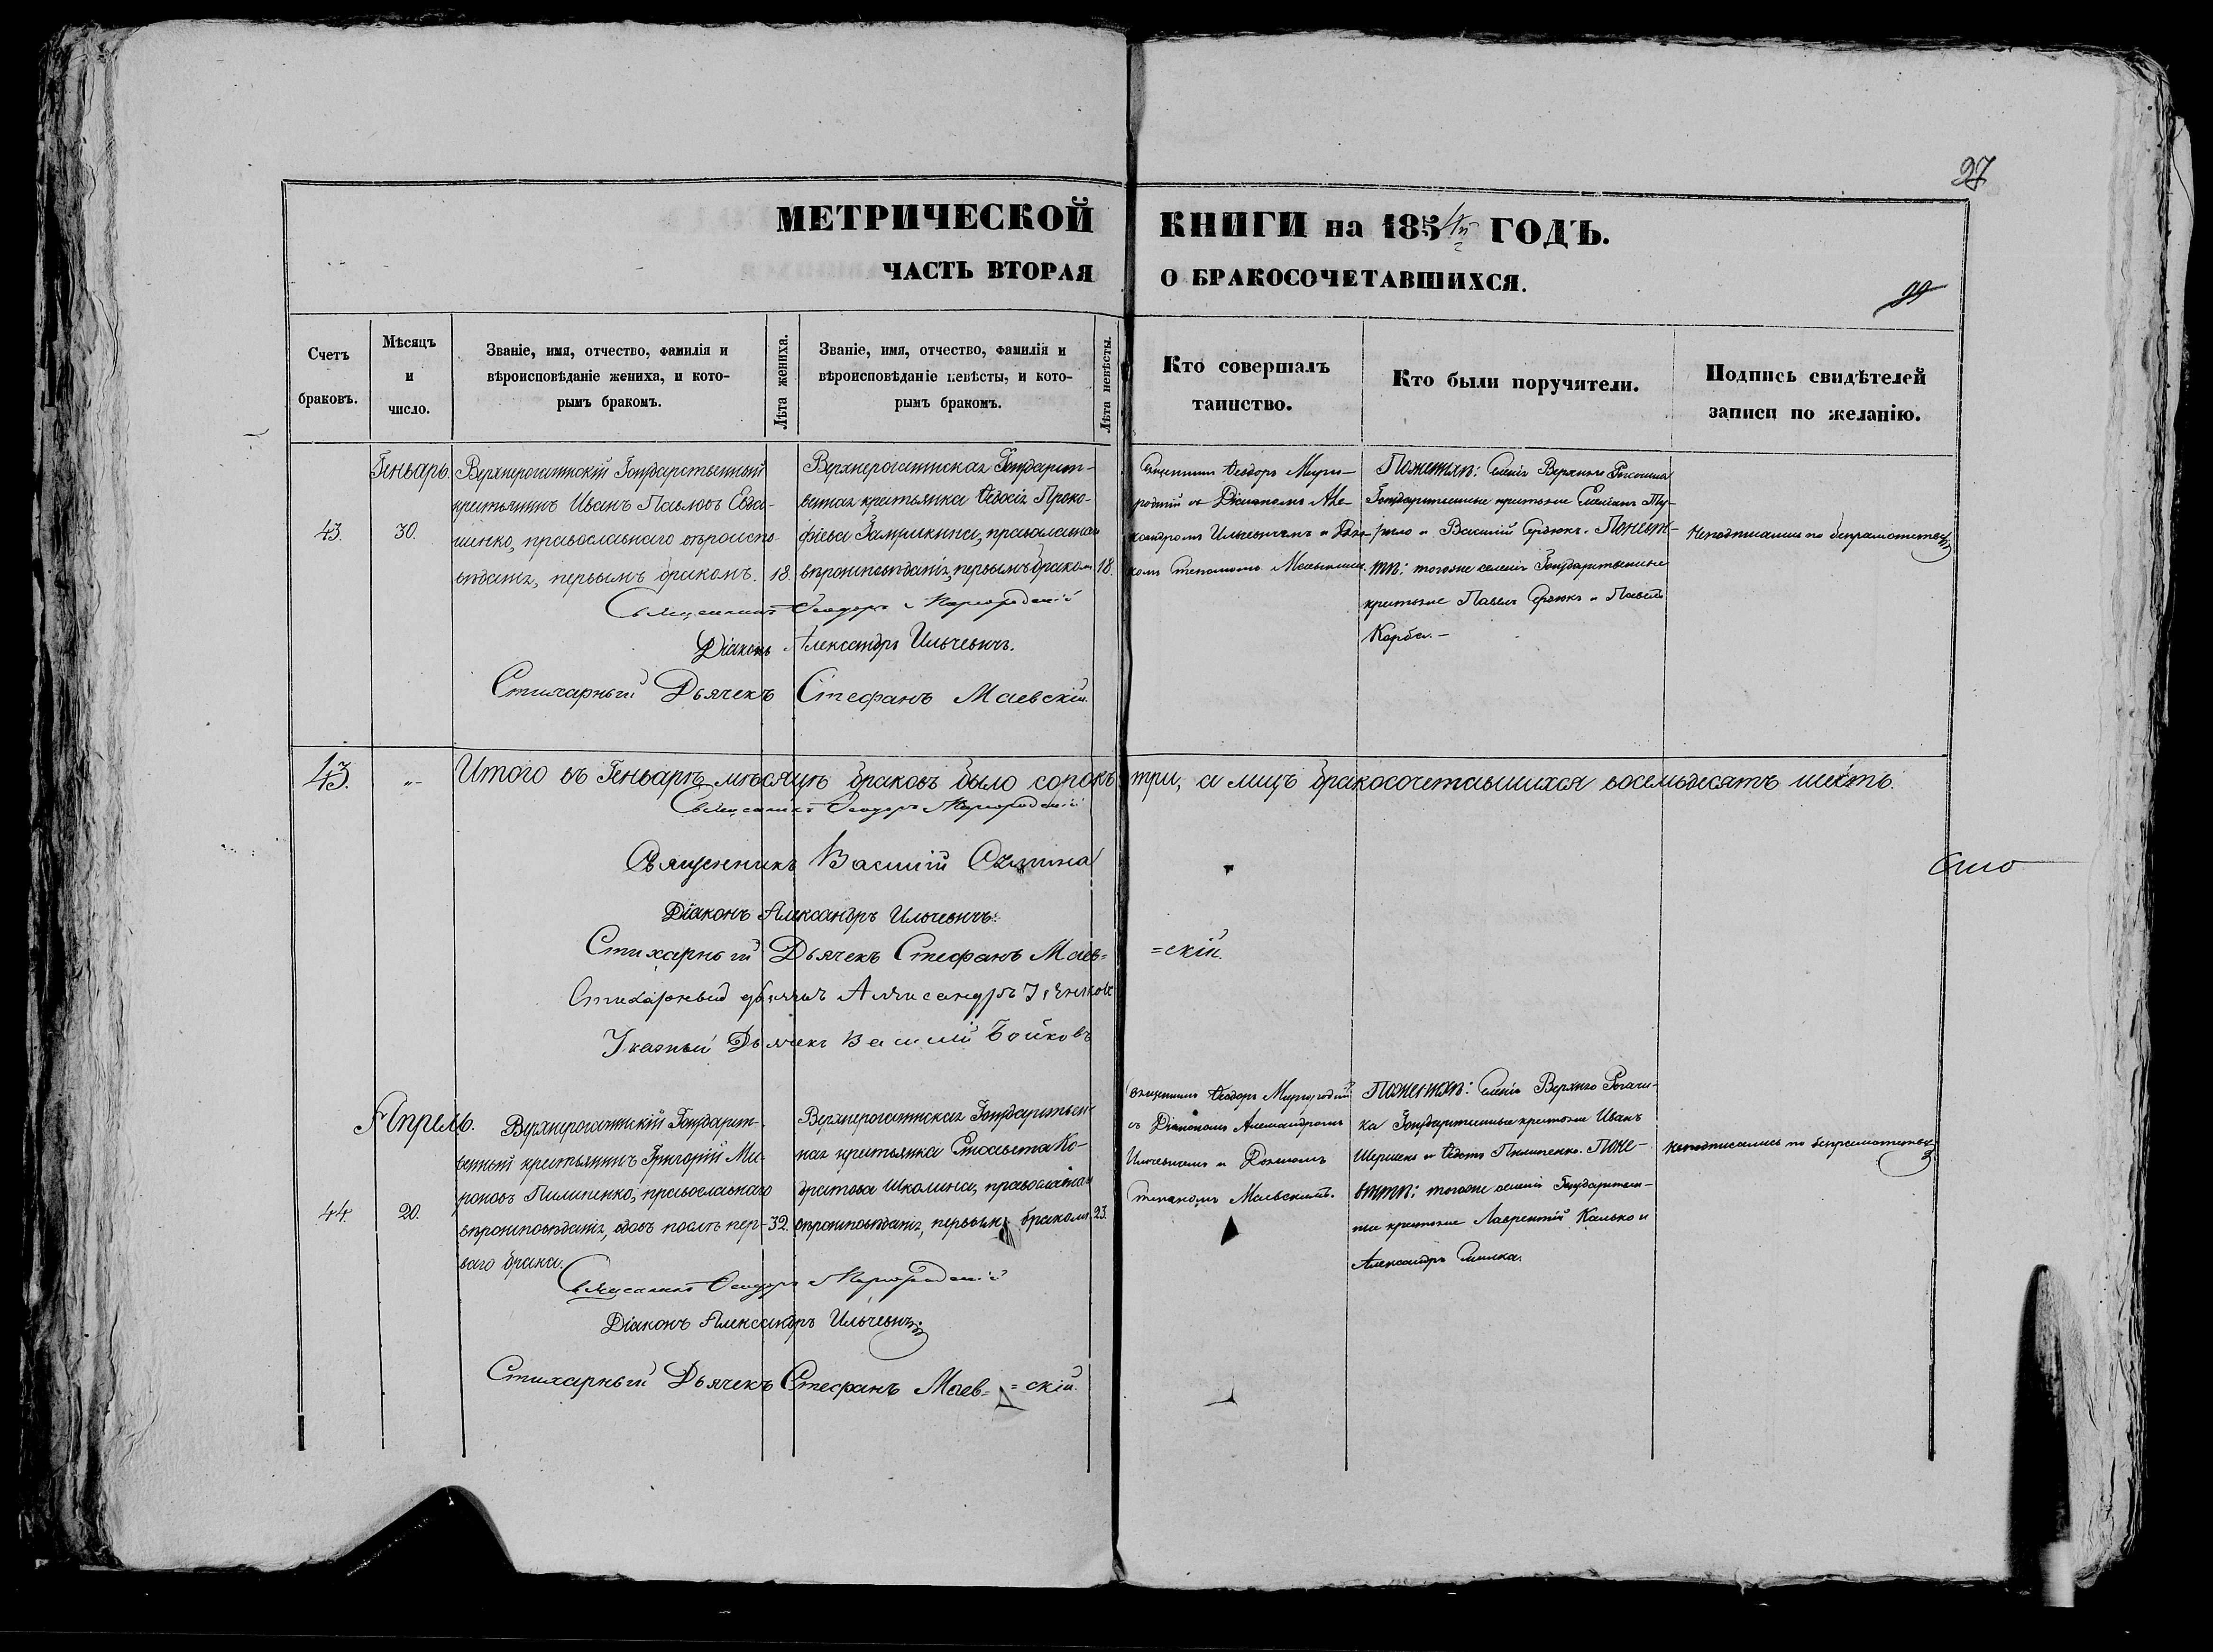 27
МЕТРИЧЕСКОЙ КНИГИ на 1854й ГОДЪ.
ЧАСТЬ ВТОРАЯ О БРАКОСОЧЕТАВШИХСЯ.
99
Счетъ браковъ.
Мѣсяцъ и число.
Званіе, имя, отчество, фамилія и
вѣроисповѣданіе жениха, и кото-
рымъ бракомъ.
Лѣта жениха.
Званіе, имя, отчество, фамилія и
вѣроисповѣданіе невѣсты, и кото-
рымъ бракомъ.
Лѣта невѣсты.
Кто совершалъ
таинство.
Кто были поручители.
Подпись свидѣтелей
записи по желанію.
43.
Геньварь.
30.
Верхнерогачикскій Государственный
крестьянинъ Иванъ Павловъ Евда-
шенко, православнаго вѣроиспо-
вѣданія, первымъ бракомъ.
18.
Верхнерогачикская Государст-
венная крестьянка Ѳеодосія Проко-
фіева Замрикина, православнаго
вѣроисповѣданія, первымъ бракомъ
18.
Священникъ Ѳеодоръ Мирго-
родскій съ Діакономъ Але-
ксандромъ Ильчевичемъ и Дьяч-
комъ Стефаномъ Маевскимъ.
По женихѣ: селенія Верхняго Рогачика
Государственные крестьяне
и Василій Сердюкъ. По невѣст-
тѣ: тогоже селенія Государственные
крестьяне Павелъ Сердюкъ и Павелъ
Корба.-
Неподписались по безграмотству
Священникъ Ѳеодоръ Миргородскій
Діаконъ Александръ Ильчевичъ.
Стихарный Дьячекъ Стефанъ Маевскій.
43. "-
Итого въ Геньварѣ мѣсяцѣ браковъ было сорокъ три, а лицъ бракосочетавшихся восемьдесятъ шесть.
Священникъ Ѳеодоръ Миргородскій
Священникъ Василій
Діаконъ Александръ Ильчевичъ.
Стихарный Дьячекъ Стефанъ Маев= =скій.
Стихарный дьячекъ Александръ
Указный Дьячекъ Василій Бойковъ
44.
Апрель.
20.
Верхнерогачикскій Государст-
венный крестьянинъ Григорій Ми-
роновъ Пилипенко, православнаго
вѣроисповѣданія, вдовъ послѣ пер-
ваго брака.
32.
Верхнерогачикская Государствен-
ная крестьянка Елисавета Ко-
дратова Школина, православнаго
вѣроисповѣданія, первымъ бракомъ
23.
Священникъ Ѳеодоръ Миргородскій
съ Діакономъ Александромъ
Ильчевичемъ и Дьячкомъ
Стефаномъ Маевскимъ.
По женихѣ: селенія Верхняго Рогачи-
ка Государственные крестьяне Иванъ
и Ѳедотъ Пилипенко. По не-
вѣстѣ: тогоже селенія Государствен-
ные крестьяне Лаврентій Калько и
Александръ
Неподписались по безграмотству
Священникъ Ѳеодоръ Миргородскій
Діаконъ Александръ Ильчевичъ
Стихарный Дьячекъ Стефанъ Маев= =скій.